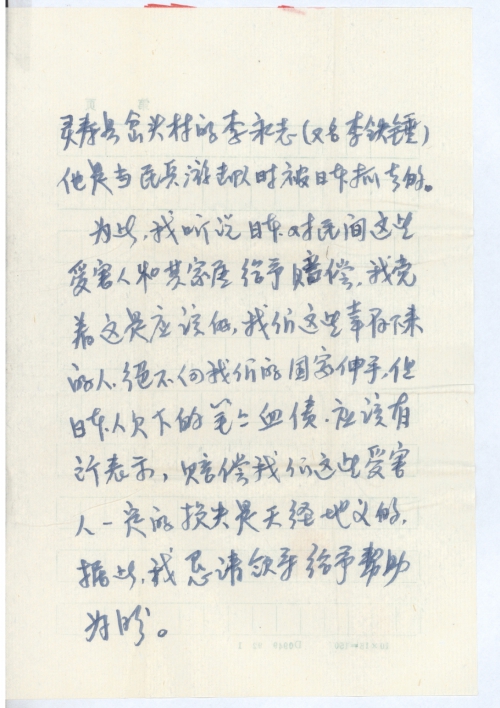 灵寿县岔头村的李永志(又名李铁锤)
他是与民兵游击队时被日本抓去的。
为此,我听说日本对民间这些
受害人和其家属给予赔偿,我觉
着这是应该的,我们这些幸存下来
的人绝不向我们的国家伸手,但
日本人欠下的笔笔血债.应该有
所表示,赔偿我们这些受害
人一定的损失是天经地义的,
据此,我恳请领导给予帮助
为盼。